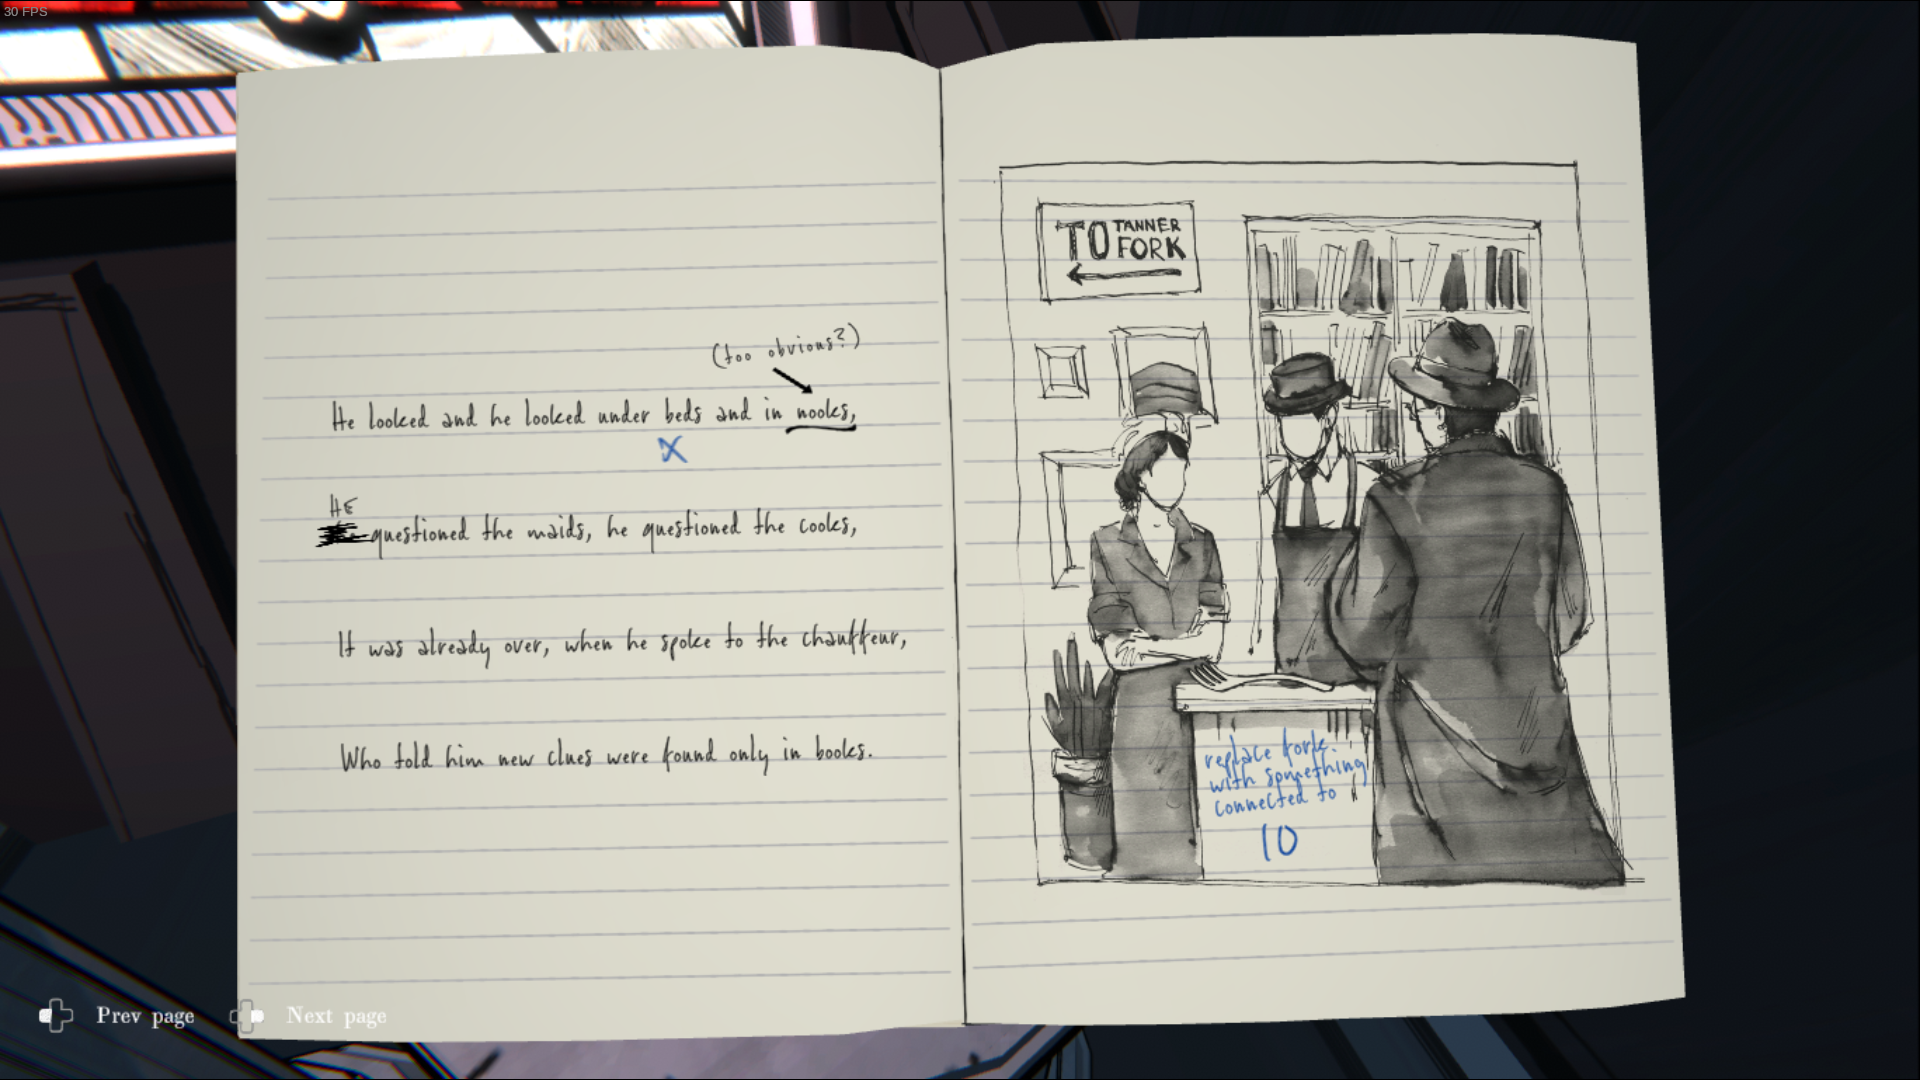 30 FPS
(too obvious?)
He looked and he looked under beds and in nooks,
X
HE
questioned the maids, he questioned the cooks,
It was already over, when he spoke to the chauffeur,
Who told him new clues were found only in books.
TO TANNER
FORK
replace fork
with something
connected to
10
Prev page
Next page